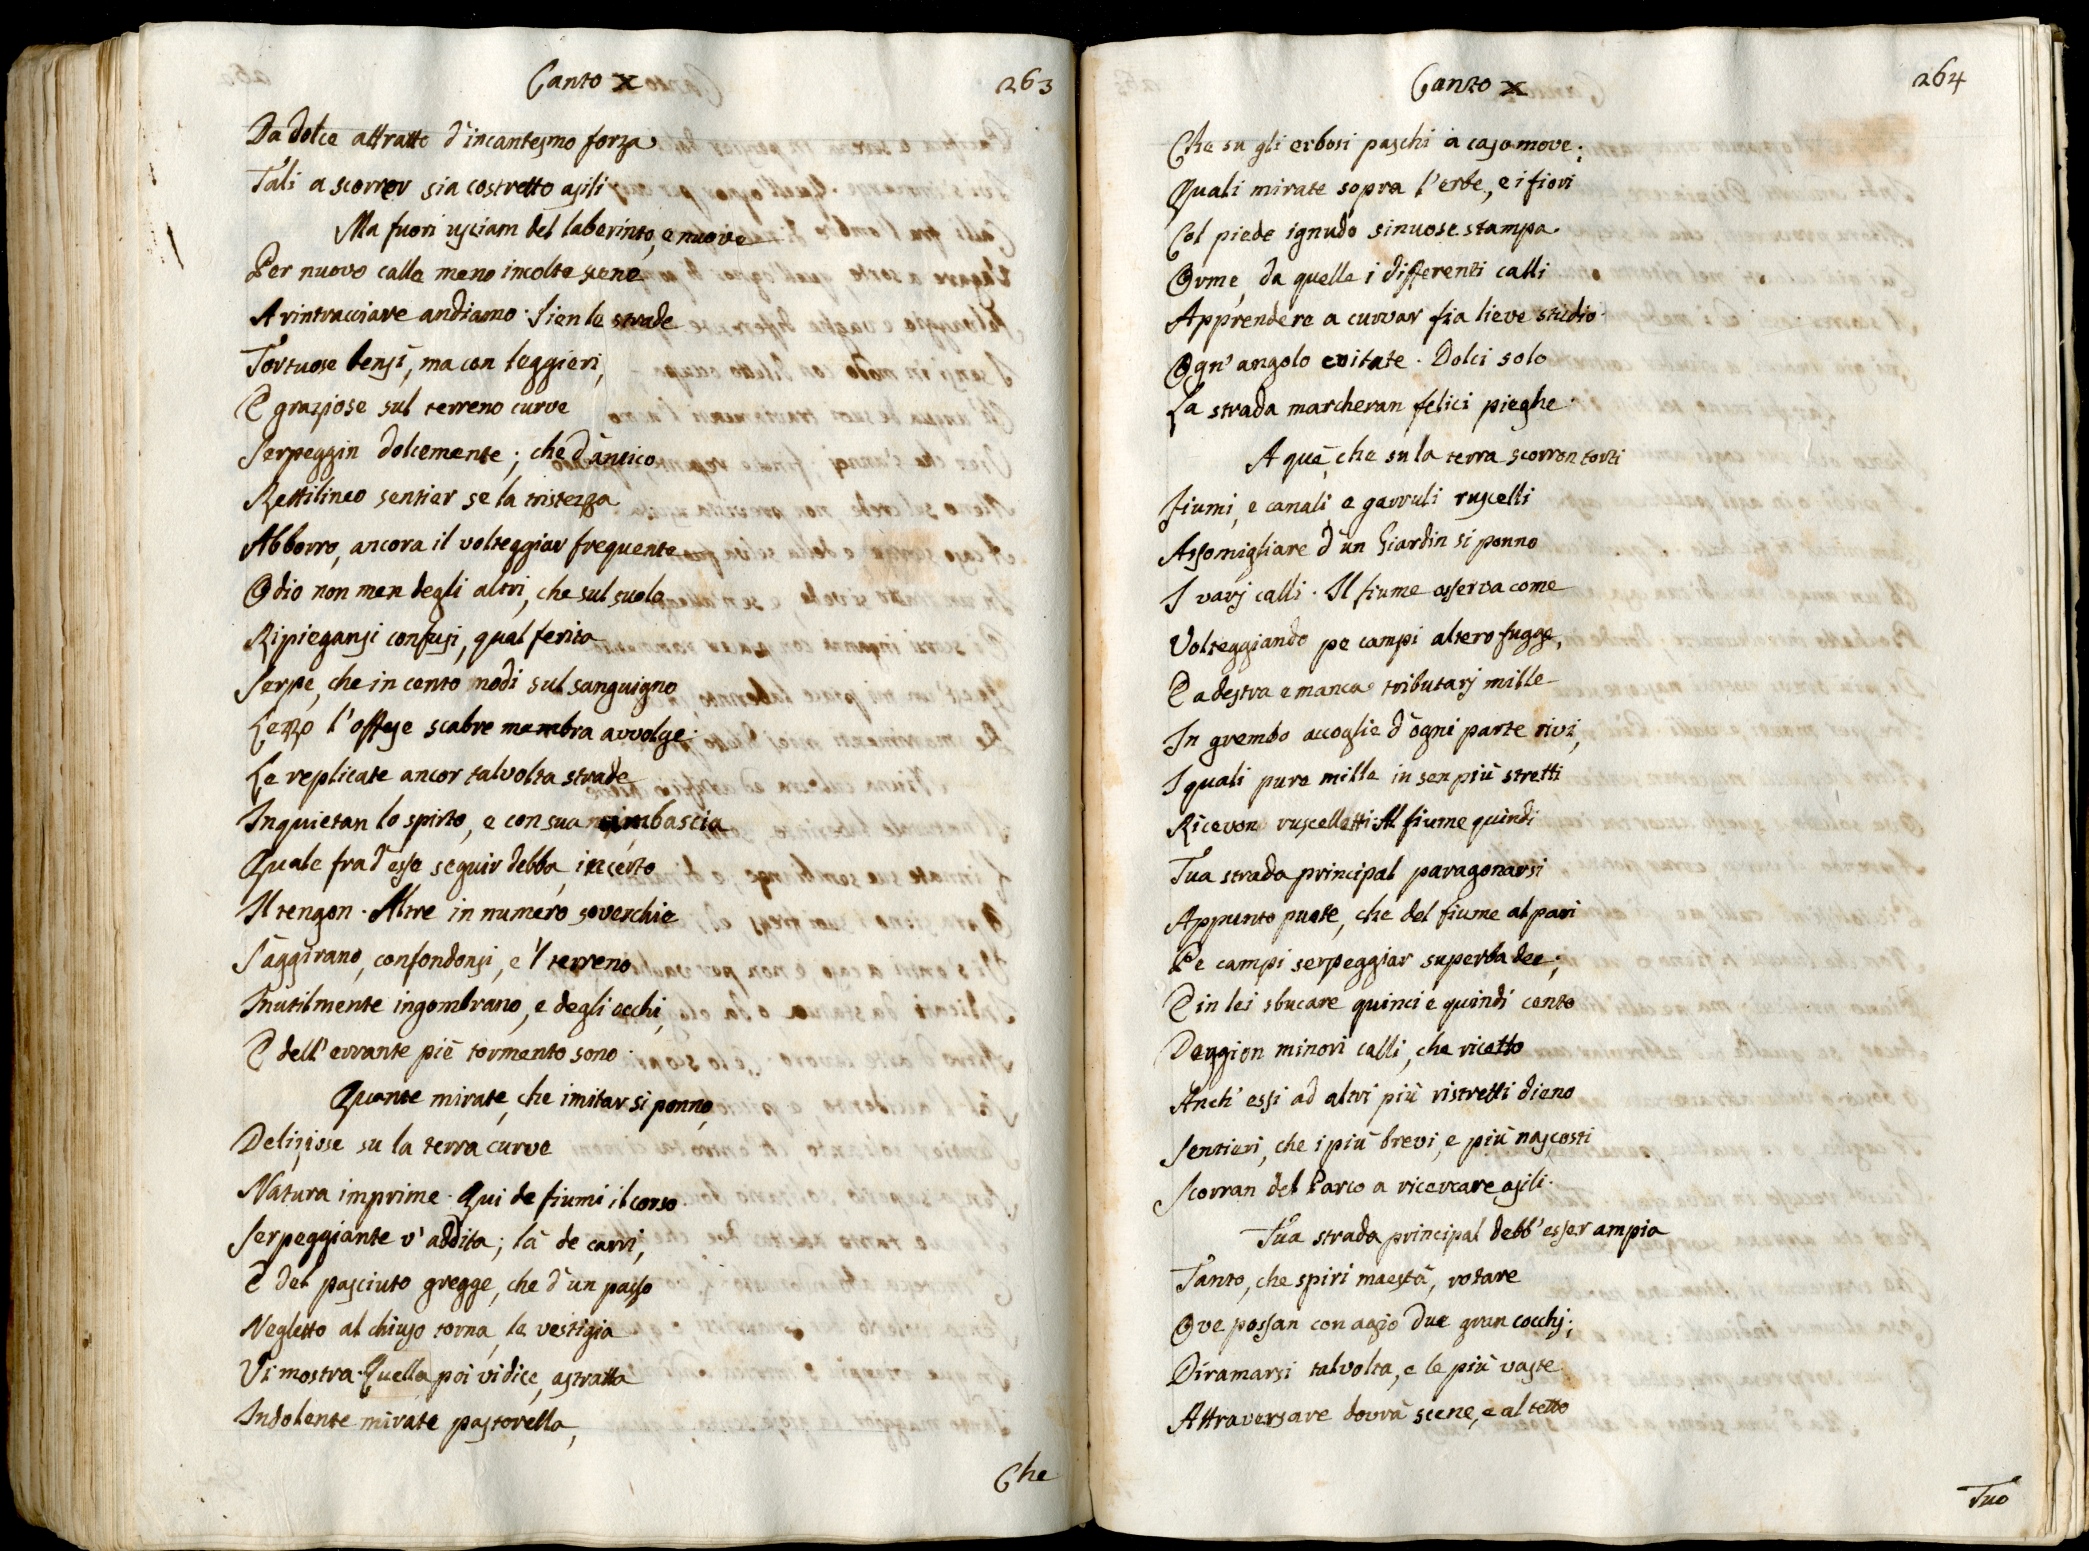 Canto X
263
Da dolce attratto d'incantesmo forza
Tali a scorrer sia costretto asili
Ma fuori usciam del laberinto, e nuove
Per nuovo calle meno incolte scene
A rintracciare andiamo. Sien le strade
Tortuose bensì, ma con leggieri,
E graziose sul terreno curve
Serpeggin dolcemente; che d'antico
Rettilineo sentier se la tristezza
Abborro, ancora il volteggiar frequente
Odio non men degli altri, che sul suolo
Ripiegansi confusi, qual ferita
Serpe, che in cento modi sul sanguigno
Lezzo l'offese scabre membra avvolge.
Le replicate ancor talvolta strade
Inquietan lo spirto, e con sua ambascia
Quale fra d'esse seguir debba, incerto
Il tengon. Altre in numero soverchie
S'aggirano, confondonsi, e 'l terreno
Inutilmente ingombrano, e degli occhi,
E dell'errante piè tormento sono.
Quante mirate, che imitar si ponno,
Deliziose su la terra curve
Natura imprime. Qui de fiumi il corso
Serpeggiante v'addita; là de carri,
E del pasciuto gregge, che d'un passo
Negletto al chiuso torna, le vestigia
Vi mostra. Quella poi vi dice, astratta
Indolente mirate pastorella,
Che
Canto X
264
Che su gli erbosi paschi a caso move;
Quali mirate sopra l'erbe, e i fiori
Col piede ignudo sinuose stampa
Orme, da quelle i differenti calli
Apprendere a curvar fia lieve studio.
Ogn'angolo evitate. Dolci solo
La strada marcheran felici pieghe.
A que, che su la terra scorron torti
Fiumi, e canali, e garruli ruscelli
Assomigliare d'un Giardin si ponno
I varj calli. Il fiume osserva come
Volteggiando pe campi altero fugge,
E a destra e manca tributarj mille
In grembo accoglie d'ogni parte rivi,
I quali pure mille in sen più stretti
Ricevon ruscelletti. Al fiume quindi
Tua strada principal paragonarsi
Appunto puote, che del fiume al pari
Pe campi serpeggiar superba dee;
E in lei sbucare quinci e quindi cento
Deggion minori calli, che ricetto
Anch'essi ad altri più ristretti dieno
Sentieri, che i più brevi, e più nascosti
Scorran del Parco a ricercare asili.
Tua strada principal debb'esser ampia
Tanto, che spiri maestà, rotare
Ove possan con agio due gran cocchj;
Diramarsi talvolta, e le più vaste
Attraversare dovrà scene, e al tetto
Tuo